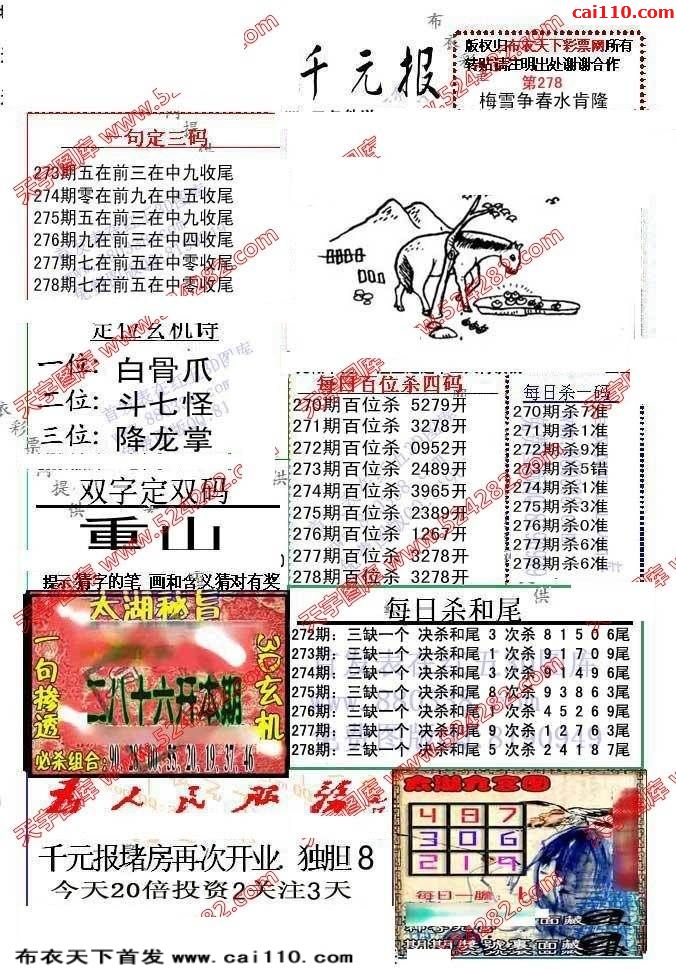 cai110.com
布衣
千元报
版权归布衣天下彩票网所有
转贴请注明出处谢谢合作
第278
梅雪争春水肯隆
一句定三码
273期五在前三在中九收尾
274期零在前九在中五收尾
275期五在前三在中九收尾
276期九在前三在中四收尾
277期七在前五在中零收尾
278期七在前五在中零收尾
定位玄机诗
一位: 白骨爪
二位: 斗七怪
三位: 降龙掌
双字定双码
重山
提示猜字的笔 画和含义猜对有奖
每日百位杀四码
270期百位杀 5279开
271期百位杀 3278开
272期百位杀 0952开
273期百位杀 2489开
274期百位杀 3965开
275期百位杀 2389开
276期百位杀 1267开
277期百位杀 3278开
278期百位杀 3278开
每日杀一码
270期杀7准
271期杀1准
272期杀9准
273期杀5错
274期杀1准
275期杀3准
276期杀0准
277期杀6准
278期杀6准
太湖秘旨
一句惨透
3D玄机
二八十六开本期
必杀组合:90,28,00,35,20,19,37,46
每日杀和尾
272期: 三缺一个 决杀和尾 3 次杀 8 1 5 0 6尾
273期: 三缺一个 决杀和尾 1 次杀 9 1 7 0 9尾
275期: 三缺一个 决杀和尾 8 次杀 9 3 8 6 3尾
276期: 三缺一个 决杀和尾 1 次杀 4 5 2 6 9尾
278期: 三缺一个 决杀和尾 5 次杀 2 4 1 8 7尾
为人民服务
千元报堵房再次开业 独胆 8
今天20倍投资2关注3天
太湖九宫图
4 8 7
3 0 6
2 1 9
每日一胆: 1
面藏
布衣天下首发 www.cai110.com
天宇图库 www.524282.com